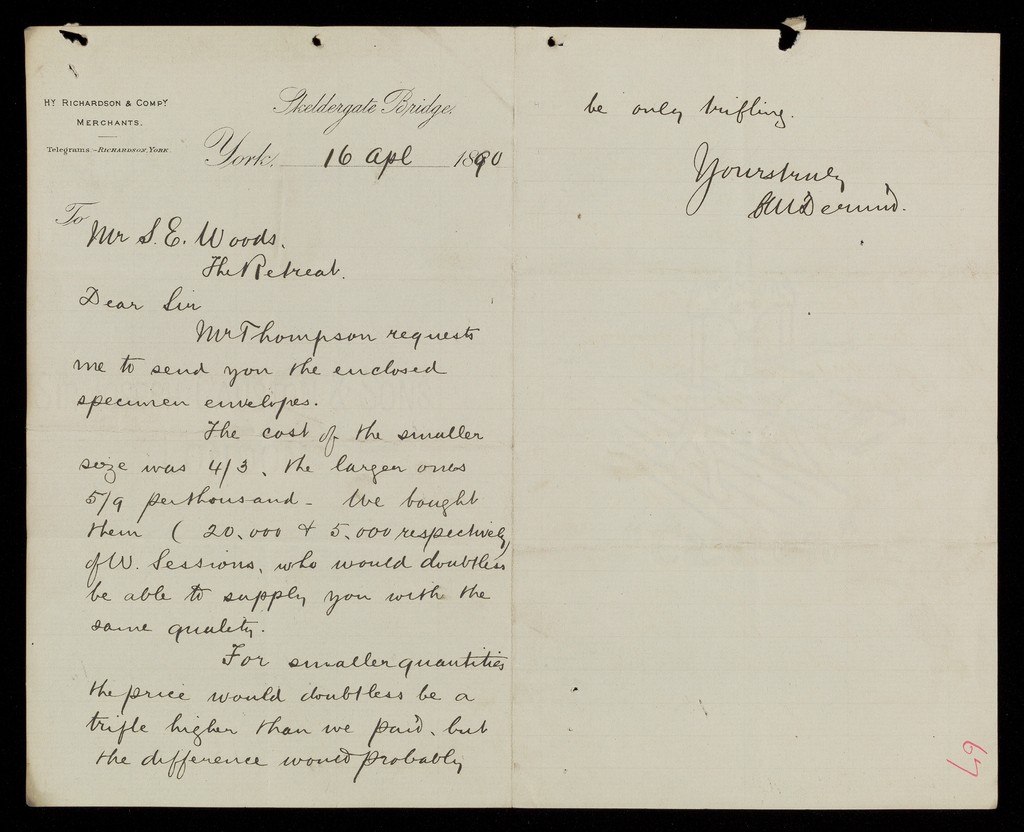 Hy Richardson & Compy
Merchants.
Telegrams:-Richardson, York
Skeldergate Bridge,
York, 16 Apl 1890
To
Mr S. E. Woods.
The Retreat.
Dear Sir
Mr Thompson requests
me to send you the enclosed
specimen envelopes.
The cost of the smaller
size was 4/3, the larger ones
5/9 per thousand - We bought
them ( 20,000 & 5,000 respectively)
of W. Sessions, who would doubtless
be able to supply you with the
same quality.
For smaller quantities
the price would doubtless be a
trifle higher than we paid, but
the difference would probably
be only trifling.
Yours truly
67